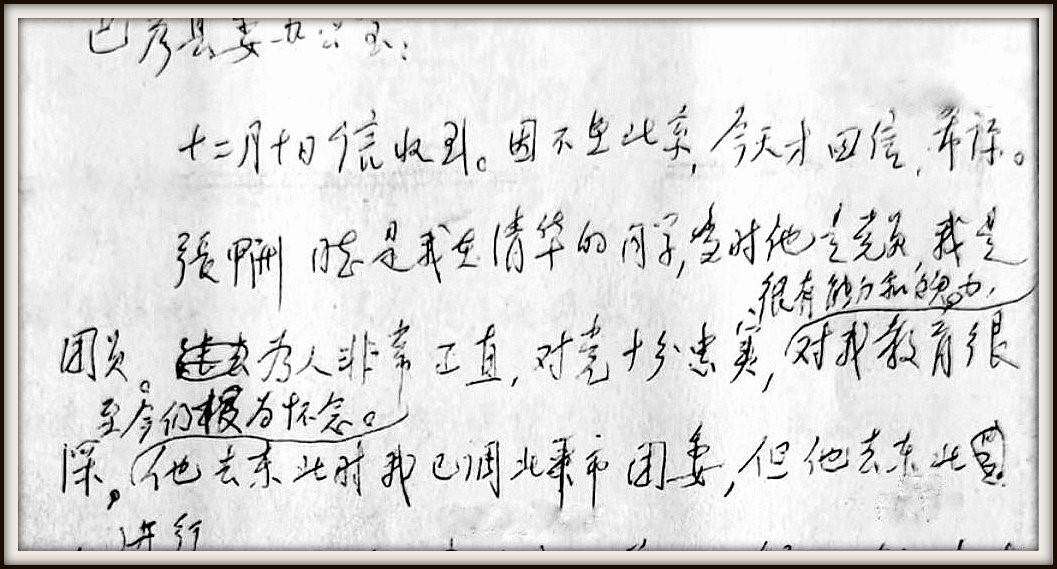 巴彦县委办公室:
十二月十日信收到。因不在北京,今天才回信,希谅。
張甲洲 时是我在清华的同学,当时他是党员,我是
很有能力和魄力,
团员。为人非常正直,对党十分忠实,对我教育很
至今仍极为怀念。
深。他去东北时我已调北京市团委,但他去东北
进行